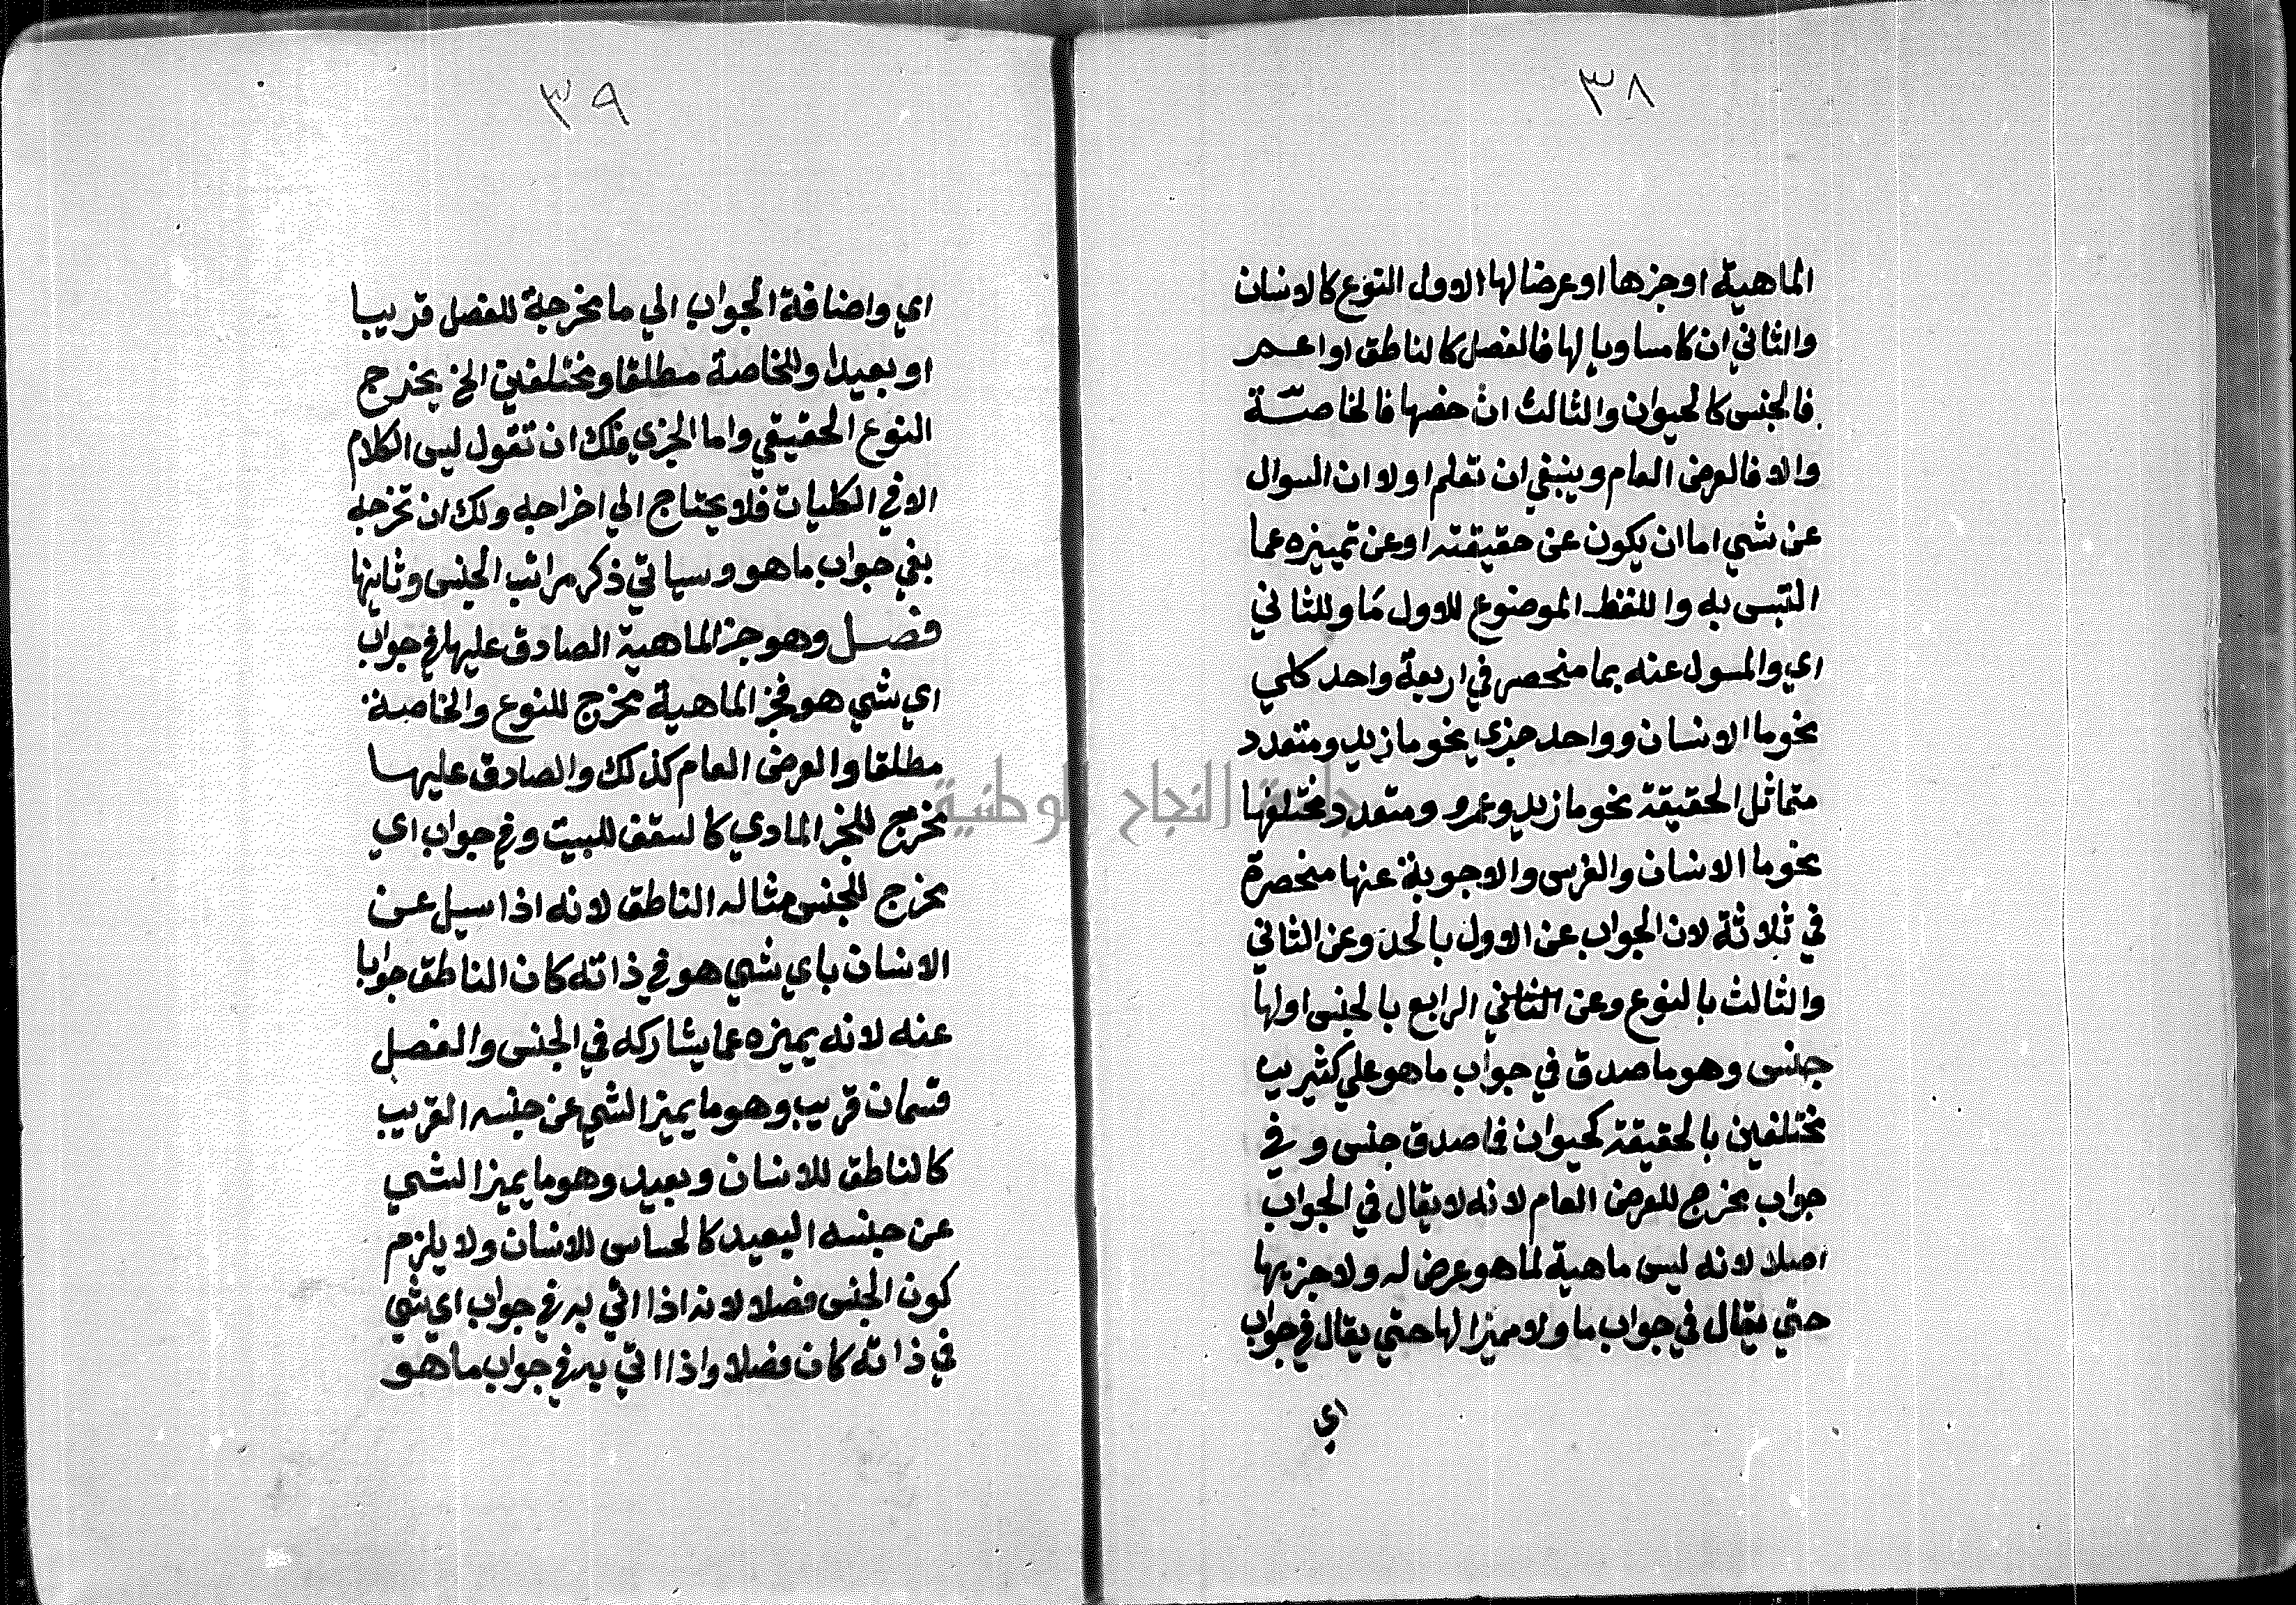 ٣٨
الماهية او جزها او عرضا لها الاول النوع كالانسان
والثاني ان كا مساويا لها فالفصل كالناطق او اعم
فالجنس كالحيوان والثالث ان خصها فالخاصّة
والا فالعرض العام وينبغي ان تعلم اولا ان السوال
عن شي اما ان يكون عن حقيقته او عن تمييزه عما
التبس به واللفظ الموضوع للاول ما وللثاني
اي والمسول عنه بما منحصر في اربعة واحد كلي
نحو ما الانسان وواحد جزي نحو ما زيد ومتعدد
متماثل الحقيقة نحو ما زيد وعمرو ومتعدد مختلفها
نحو ما الانسان والفرس والاجوبة عنها منحصرة
في ثلاثة لان الجواب عن الاول بالحد وعن الثاني
والثالث بالنوع وعن الثاني الرابع بالجنس اولها
جنس وهو ما صدق في جواب ما هو علي كثيرين
مختلفين بالحقيقة كحيوان فما صدق جنس وفي
جواب مخرج للعرض العام لانه لا يقال في الجواب
اصلا لانه ليس ماهية لما هو عرض له ولا جزيها
حتي يقال في جواب ما ولا مميزا لها حتي يقال في جواب
اي
٣٩
اي واضافة الجواب الي ما مخرجة للفصل قريبا
او بعيدا والخاصة مطلقا ومختلفين الخ يخرج
النوع الحقيقي واما الجزي فلك ان تقول ليس الكلام
الا في الكليات فلا يحتاج الي اخراجه ولك ان تخرجه
بفي جواب ما هو وسياتي ذكر مراتب الجنس وثانيها
فصل وهو جز الماهية الصادق عليها في جواب
اي شي هو فجز الماهية مخرج للنوع والخاصة
مطلقا والعرض العام كذلك والصادق عليها
مخرج للجز المادي كالسقف للبيت وفي جواب اي
مخرج للجنس مثاله الناطق لانه اذا سيل عن
الانسان باي شي هو في ذاته كان الناطق جوابا
عنه لانه يميزه عما يشاركه في الجنس والفصل
قسمان قريب وهو ما يميز الشي عن جنسه القريب
كالناطق للانسان وبعيد وهو ما يميز الشي
عن جنسه البعيد كالحساس للانسان ولا يلزم
كون الجنس فصلا لانه اذا اتي به في جواب اي شي
في ذاته كان فصلا واذا اتي به في جواب ما هو
جامعة النجاح الوطنية